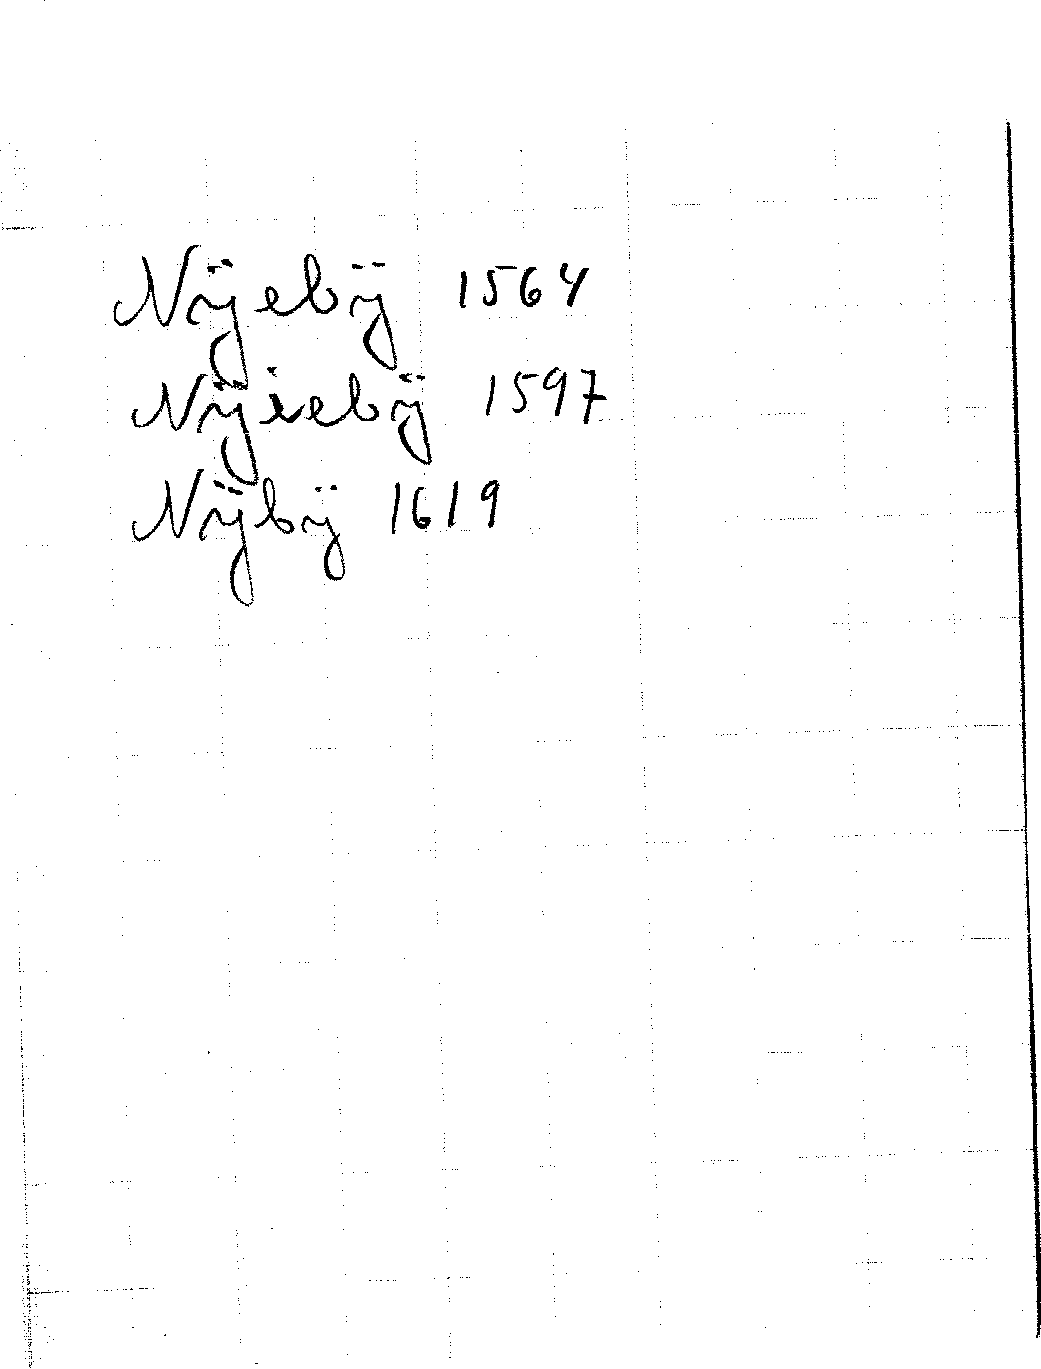 Nÿebÿ 1564
Nÿiebÿ 1597
Nÿbÿ 1619